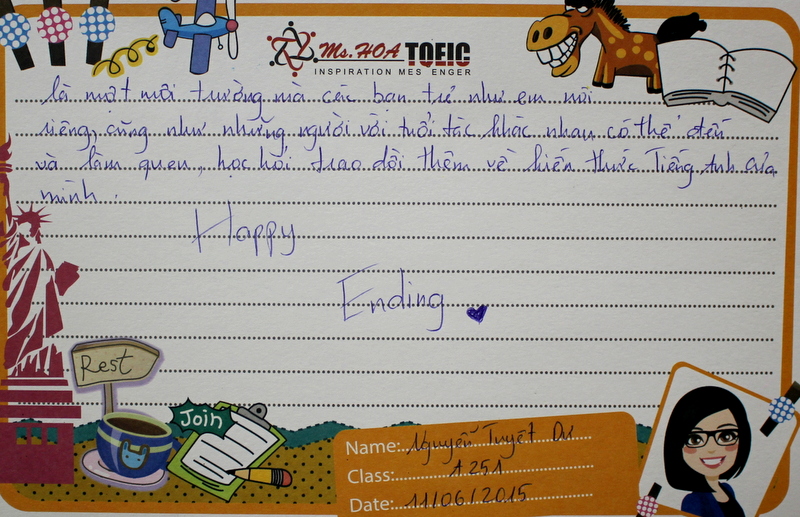 Ms. HOA TOEIC
INSPIRATION MES ENGER
là một môi trường mà các bạn trẻ như em nói
riêng, cũng như những người với tuổi tác khác nhau có thể đến
và làm quen, học hỏi trao dồi thêm về kiến thức Tiếng Anh của
mình.
Happy
Ending
Rest
Join
Name: Nguyễn Tuyết Dư
Class: A251
Date: 11/06/2015